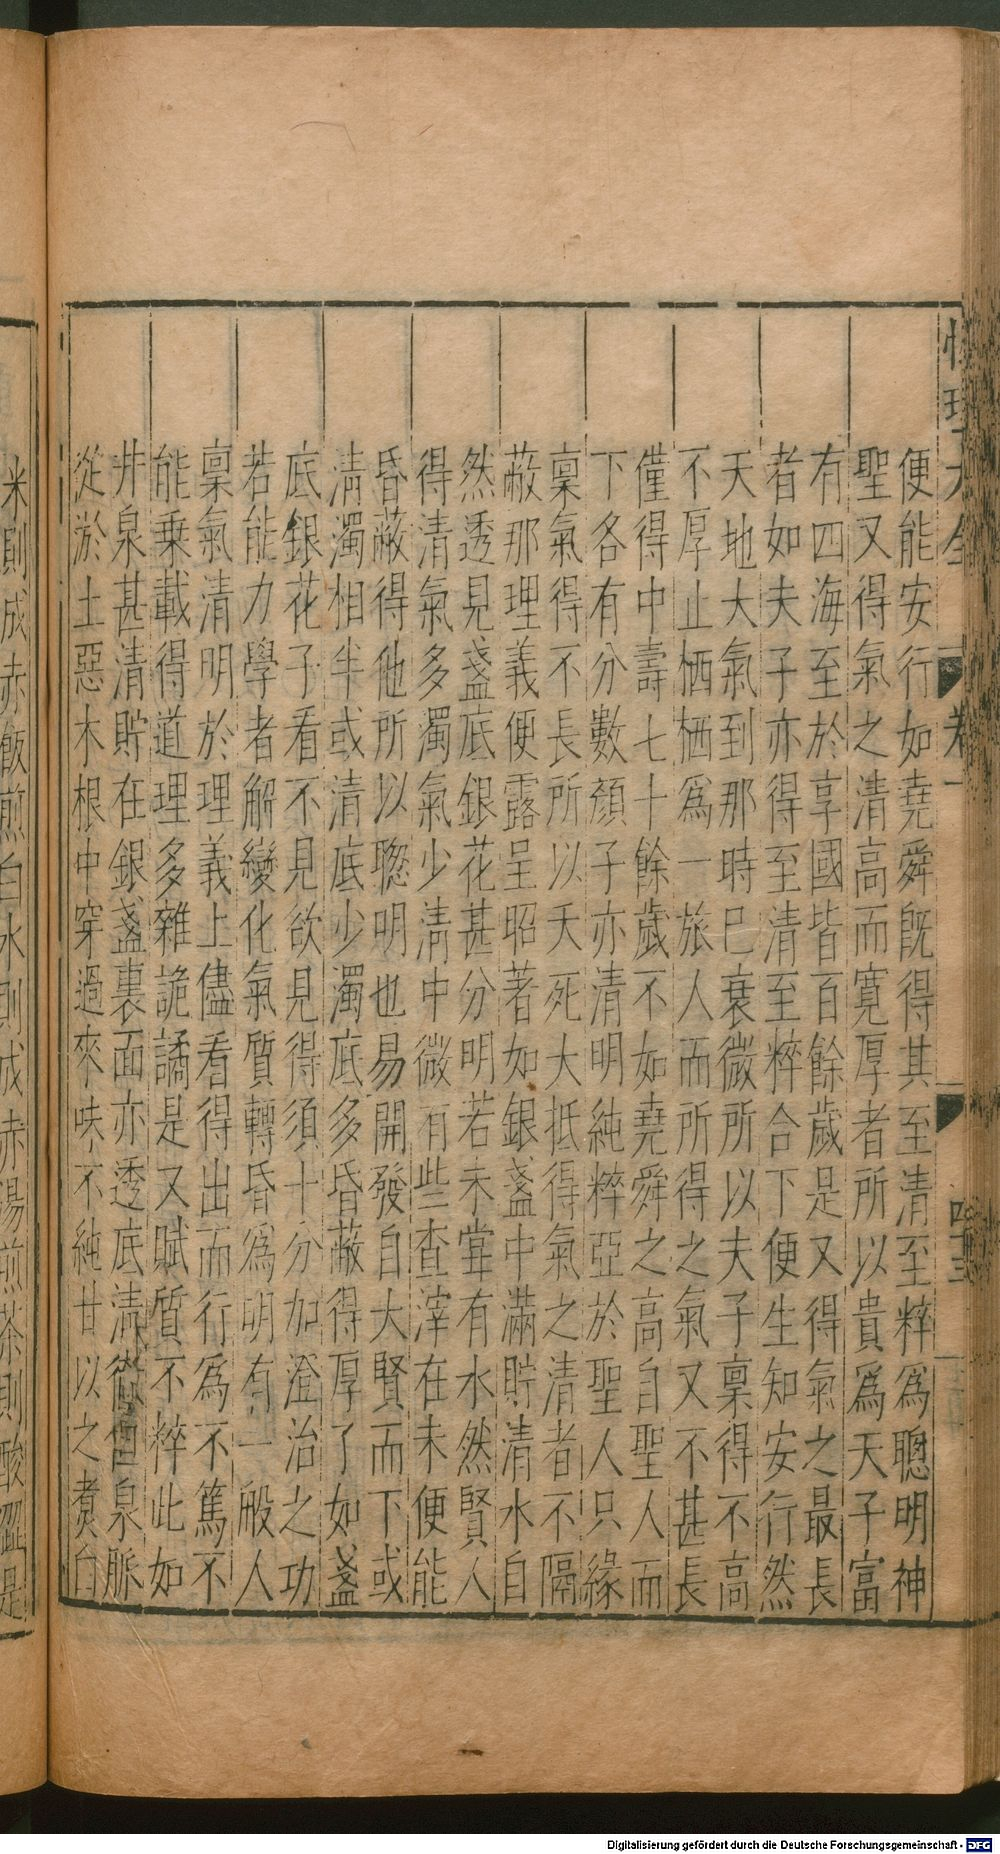 便能安行如堯舜旣得其至清至粹爲聰明神
聖又得氣之清高而寛厚者所以貴爲天子富
有四海至於享國皆百餘歲是又得氣之最長
者如夫子亦得至清至粹合下便生知安行然
天地大氣到那時已衰微所以夫子稟得不高
不厚止栖栖爲一旅人而所得之氣又不甚長
僅得中壽七十餘歲不如堯舜之高自聖人而
下各有分數顔子亦清明純粹亞於聖人只緣
稟氣得不長所以夭死大抵得氣之清者不隔
蔽那理義便露呈昭著如銀盞中滿貯清水自
然透見盞底銀花甚分明若未甞有水然賢人
得清氣多濁氣少清中微有些查滓在未便能
昏蔽得他所以聦明也易開發自大賢而下或
清濁相半或清底少濁底多昏蔽得厚了如盞
底銀花子看不見欲見得須十分加澄治之功
若能力學者解變化氣質轉昏爲明有一般人
稟氣清明於理義上儘看得出而行爲不篤不
能乗載得道理多雜詭譎是又賦質不粹此如
井泉甚清貯在銀盞裏面亦透底清徹但泉脉
從淤土惡木根中穿過來味不純甘以之煑白
米則成赤飯煎白水則成赤湯煎茶則酸澀是
性理大全
卷一
四十三
Digitalisierung gefördert durch die Deutsche Forschungsgemeinschaft - DFG